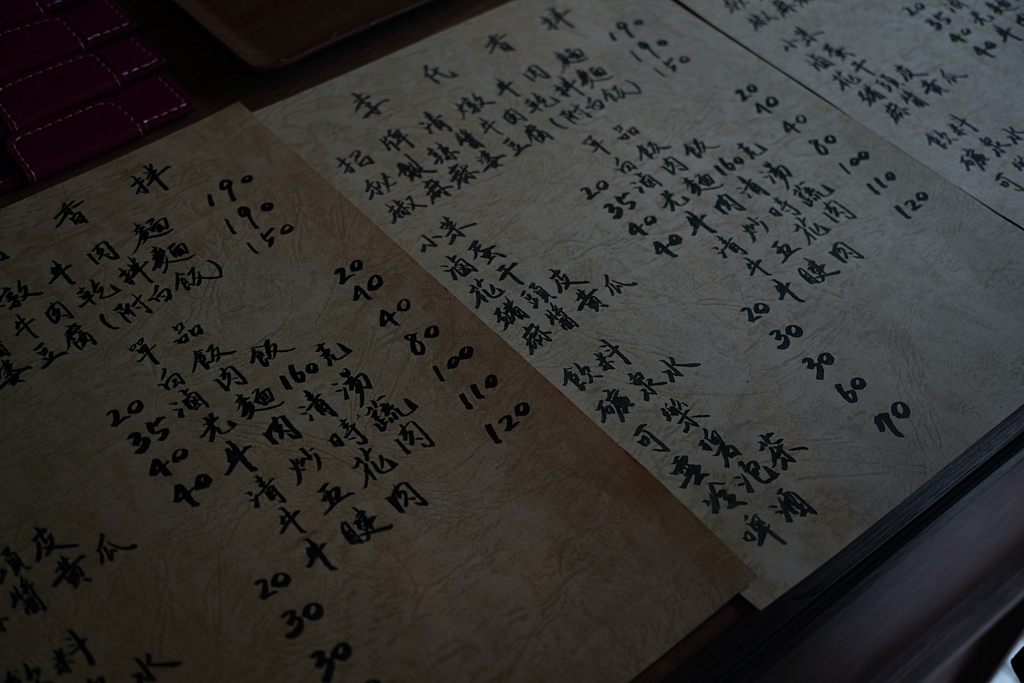 香拌
燉牛肉麵 190
牛肉乾拌麵 190
婆豆腐(附白飯) 150
單品
白飯 20
滷肉飯 40
光麵160克 40
牛肉清湯 80
清炒時蔬 100
牛五花肉 110
牛腱肉 120
20
35
頭皮 40
醬黃瓜 40
飲料
水 20
30
30
李氏香拌
招牌清燉牛肉麵 190
秘製辣醬牛肉乾拌麵 190
椒麻麻婆豆腐(附白飯) 150
小菜
滷蛋 20
花干 35
豬頭皮 40
麻醬黃瓜 40
單品
白飯 20
滷肉飯 40
光麵160克 40
牛肉清湯 80
清炒時蔬 100
牛五花肉 110
牛腱肉 120
飲料
礦泉水 20
可樂 30
雪碧 30
冷泡茶 60
啤酒 70
小菜
滷蛋 20
花干 35
豬頭皮 40
麻醬黃瓜 40
飲料
礦泉水
可